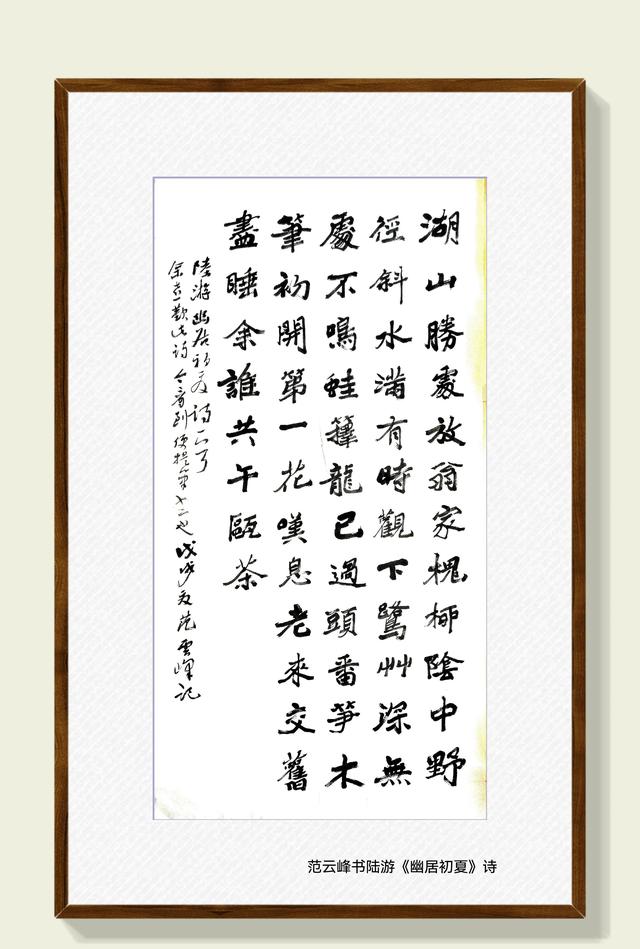 湖山勝處放翁家槐柳陰中野
徑斜水滿有時觀下鷺艸深無
處不鳴蛙籜龍已過頭番笋木
筆初開第一花嘆息老來交舊
盡睡余誰共午甌茶
陸游幽居初夏诗
余喜歡此诗今便提笔戊戌夏范雲峰記
范云峰书陆游《幽居初夏》诗